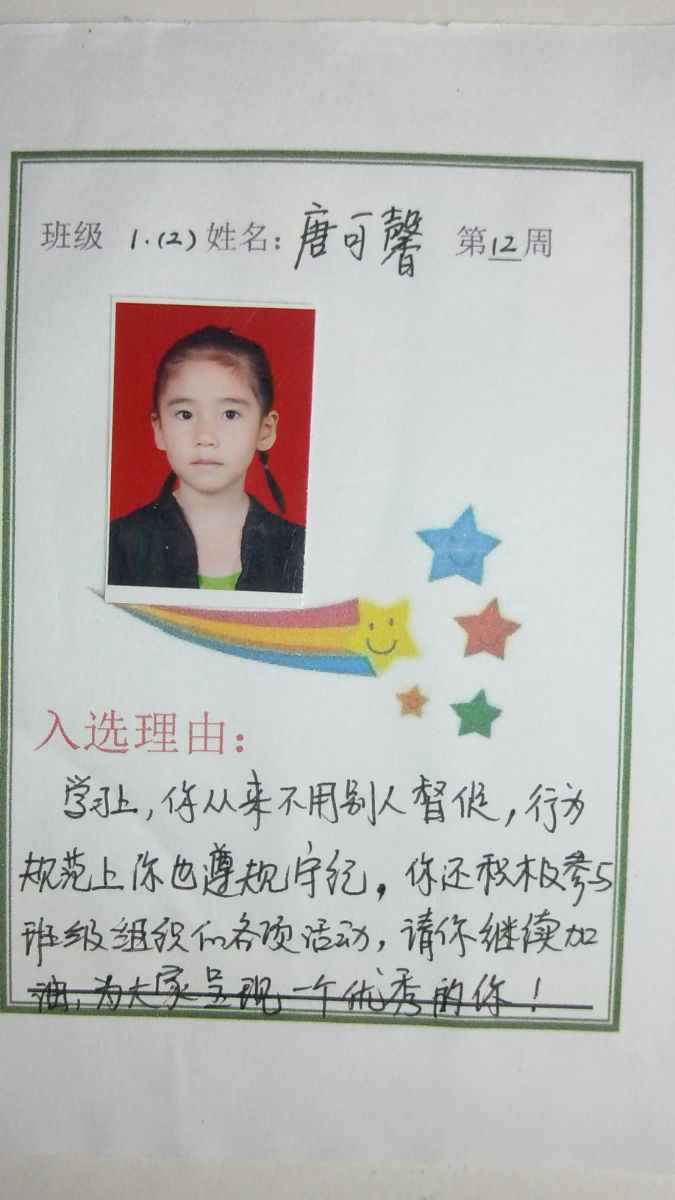 班级 1.(2) 姓名: 唐可馨 第12周
入选理由:
学习上,你从来不用别人督促,行为
规范上你也遵规守纪,你还积极参与
班级组织的各项活动,请你继续加
油,为大家呈现一个优秀的你!